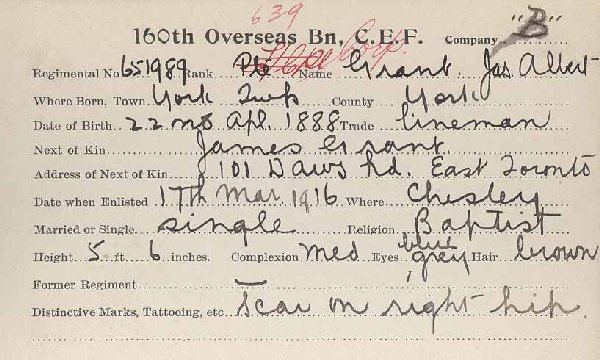 639
160th Overseas Bn, C.E.F. Company "B"
Regimental No 651989 Rank Pte Corp. Name Grant. Jas Albert
Where Born, Town York Twp County York
Date of Birth 22nd Apl. 1888 Trade lineman
Next of Kin James Grant
Address of Next of Kin 101 Daws Rd. East Toronto
Date when Enlisted 17th Mar 1916 Where Chesley
Married or Single single Religion Baptist
Height 5 ft 6 inches. Complexion Med Eyes blue grey Hair brown
Former Regiment
Distinctive Marks, Tattooing, etc Scar on right hip.